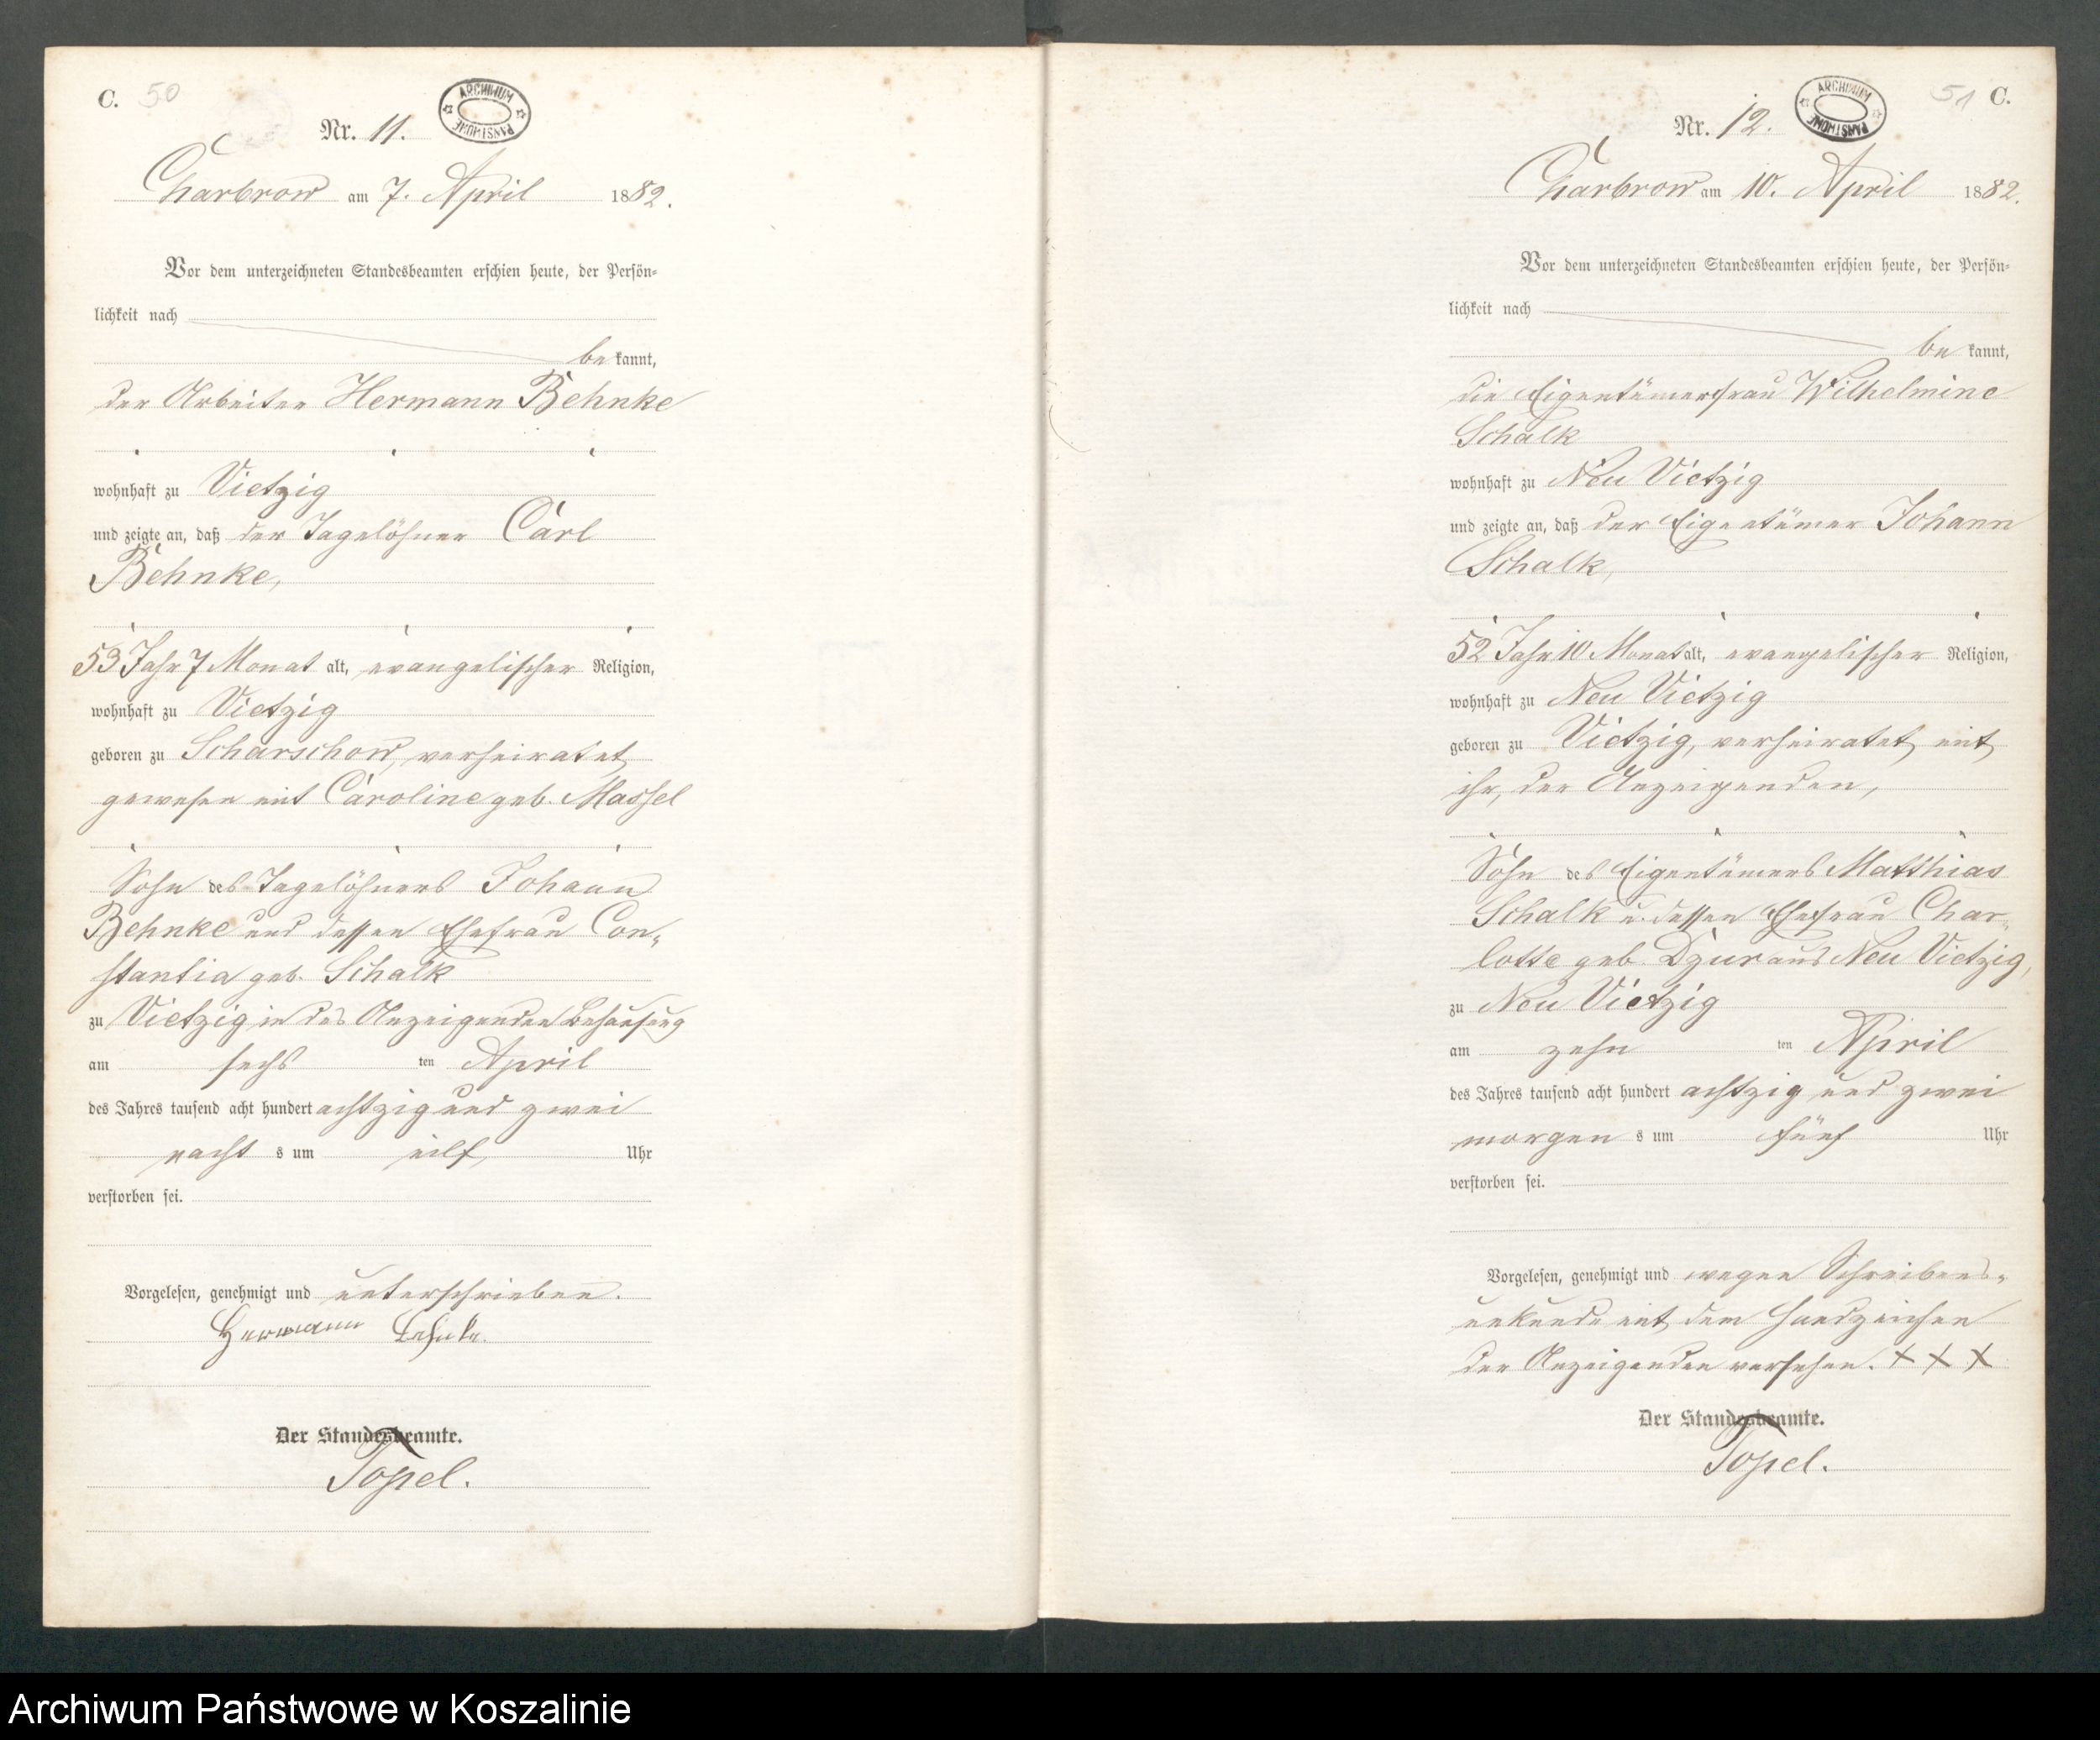 C. 50
Nr. 11.
ARCHIWUM PAŃSTWOWE
Charbrow am 7. April 1882.
Vor dem unterzeichneten Standesbeamten erschien heute, der Persön-
lichkeit nach
be kannt,
der Arbeiter Hermann Behnke
wohnhaft zu Vietzig
und zeigte an, daß der Tagelöhner Carl
Behnke,
53 Jahr 7 Monat alt, evangelischer Religion,
wohnhaft zu Vietzig
geboren zu Scharschow, verheiratet
gewesen mit Caroline geb. Massel
Sohn des Tagelöhners Johann
Behnke und dessen Ehefrau Con-
stantia geb. Schalk
zu Vietzig in des Anzeigenden Behausung
am sechs ten April
des Jahres tausend acht hundert achtzig und zwei
nacht s um eilf Uhr
verstorben sei.
Vorgelesen, genehmigt und unterschrieben.
Hermann Behnke.
Der Standesbeamte.
Topel.
51 C.
Nr. 12.
ARCHIWUM PAŃSTWOWE
Charbrow am 10. April 1882.
Vor dem unterzeichneten Standesbeamten erschien heute, der Persön-
lichkeit nach
be kannt,
die Eigentümerfrau Wilhelmine
Schalk
wohnhaft zu Neu Vietzig
und zeigte an, daß der Eigentümer Johann
Schalk,
52 Jahr 10 Monat alt, evangelischer Religion,
wohnhaft zu Neu Vietzig
geboren zu Vietzig, verheiratet mit
ihr, der Anzeigenden,
Sohn des Eigentümers Matthias
Schalk u. dessen Ehefrau Char-
lotte geb. Dzur aus Neu Vietzig,
zu Neu Vietzig
am zehn ten April
des Jahres tausend acht hundert achtzig und zwei
morgen s um fünf Uhr
verstorben sei.
Vorgelesen, genehmigt und wegen Schreibens-
unkunde mit dem Handzeichen
der Anzeigenden versehen. X X X
Der Standesbeamte.
Topel.
Archiwum Państwowe w Koszalinie